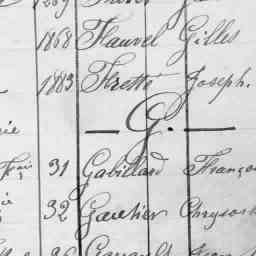 1868 Flauvel Gilles
1883 Fretté Joseph.
— G. —
31 Gabillard Franço
32 Gautier Chrysos